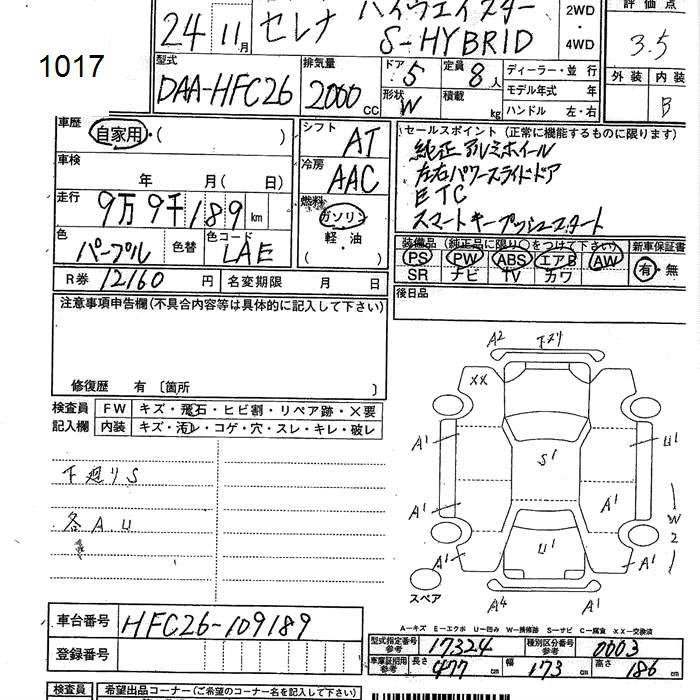 1017
24 11月
セレナ ハイウェイスター
S-HYBRID
2WD
・
4WD
評価点
3.5
外装 内装
B
型式
DAA-HFC26
排気量
2000 CC
ドア
5
定員
8人
形状
W
積載
kg
ディーラー・並行
モデル年式 年
ハンドル 左・右
車歴
自家用・( )
車検
年 月( 日)
走行
9万9千189 km
色
パープル
色替
色コード
LAE
シフト
AT
冷房
AAC
燃料
ガソリン
軽・油
( )
セールスポイント (正常に機能するものに限ります)
純正アルミホイール
左右パワースライドドア
ETC
スマートキープッシュスタート
装備品 (純正品に限り○をつけて下さい)
PS PW ABS エアB AW
SR ナビ TV カワ
新車保証書
有・無
R券 12160 円
名変期限 月 日
後日品
注意事項申告欄(不具合内容等は具体的に記入して下さい)
修復歴 有 〔箇所 〕
検査員
記入欄
FW キズ・飛石・ヒビ割・リペア跡・×要
内装 キズ・汚レ・コゲ・穴・スレ・キレ・破レ
下廻りS
各AU
A2 下スリ
XX
A1
U1
S1
A1
A1
W2
U1
A1
A1
スペア
A4 A1
A-キズ E-エクボ U-凹み W-補修跡 S-サビ C-腐食 XX-交換済
車台番号
HFC26-109189
登録番号
型式指定番号
参考
17324
種別区分番号
参考
0003
車庫証明用
参考
長さ 477 cm 幅 173 cm 高さ 186 cm
検査員
希望出品コーナー(ご希望のコーナー名を記入して下さい)